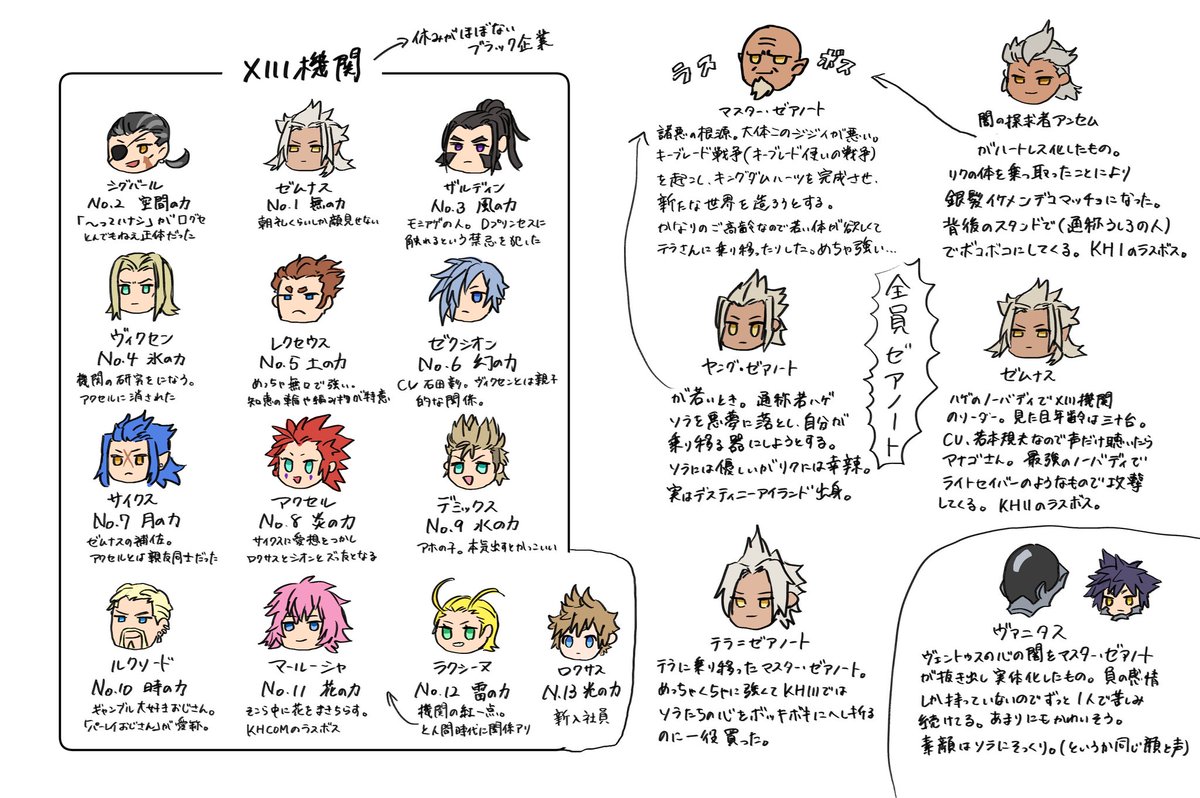 XIII機関
休みがほぼない
ブラック企業
シグバール
No.2 空間の力
「〜ってハナシ」が口グセ
とんでもねえ正体だった
ゼムナス
No.1 無の力
朝礼くらいしか顔見せない
ザルディン
No.3 風の力
モミアゲの人。Dプリンセスに
触れるという禁忌を犯した
ヴィクセン
No.4 氷の力
機関の研究をになう。
アクセルに消された
レクセウス
No.5 土の力
めっちゃ無口で強い。
知恵の輪や編み物が特意
ゼクシオン
No.6 幻の力
CV 石田彰。ヴィクセンとは親子
的な関係。
サイクス
No.7 月の力
ゼムナスの補佐。
アクセルとは親友同士だった
アクセル
No.8 炎の力
サイクスに愛想をつかし
ロクサスとシオンとズッ友となる
デミックス
No.9 水の力
アホの子。本気出すとかっこいい
ルクソード
No.10 時の力
ギャンブル大好きおじさん。
「パーレイおじさん」が愛称。
マールーシャ
No.11 花の力
そこら中に花をまきちらす。
KHCOMのラスボス
ラクシーヌ
No.12 雷の力
機関の紅一点。
と人間時代に関係アリ
ロクサス
N.13 光の力
新入社員
ラス ボス
マスター・ゼアノート
諸悪の根源。大体このジジイが悪い。
キーブレード戦争(キーブレード使いの戦争)
を起こし、キングダムハーツを完成させ、
新たな世界を造ろうとする。
かなりのご高齢なので若い体が欲しくて
テラさんに乗り移ったりした。めちゃ強い…
闇の探求者アンセム
がハートレス化したもの。
リクの体を乗っ取ったことにより
銀髪イケメンデコマッチョになった。
背後のスタンドで(通称うしろの人)
でボコボコにしてくる。KHIのラスボス。
全員ゼアノート
ヤング・ゼアノート
が若いとき。通称若ハゲ
ソラを悪夢に落とし、自分が
乗り移る器にしようとする。
ソラには優しいがリクには辛辣。
実はデスティニーアイランド出身。
ゼムナス
ハゲのノーバディでXIII機関
のリーダー。見た目年齢は三十台。
CV、若本規夫なので声だけ聴いたら
アナゴさん。最強のノーバディで
ライトセイバーのようなもので攻撃
してくる。KHIIのラスボス。
テラ=ゼアノート
テラに乗り移ったマスター・ゼアノート。
めっちゃくちゃに強くてKHIIIでは
ソラたちの心をボッキボキにへし折る
のに一役買った。
ヴァニタス
ヴェントゥスの心の闇をマスター・ゼアノート
が抜き出し実体化したもの。負の感情
しか持っていないのでずっと1人で苦しみ
続けてる。あまりにもかわいそう。
素顔はソラにそっくり。(というか同じ顔と声)